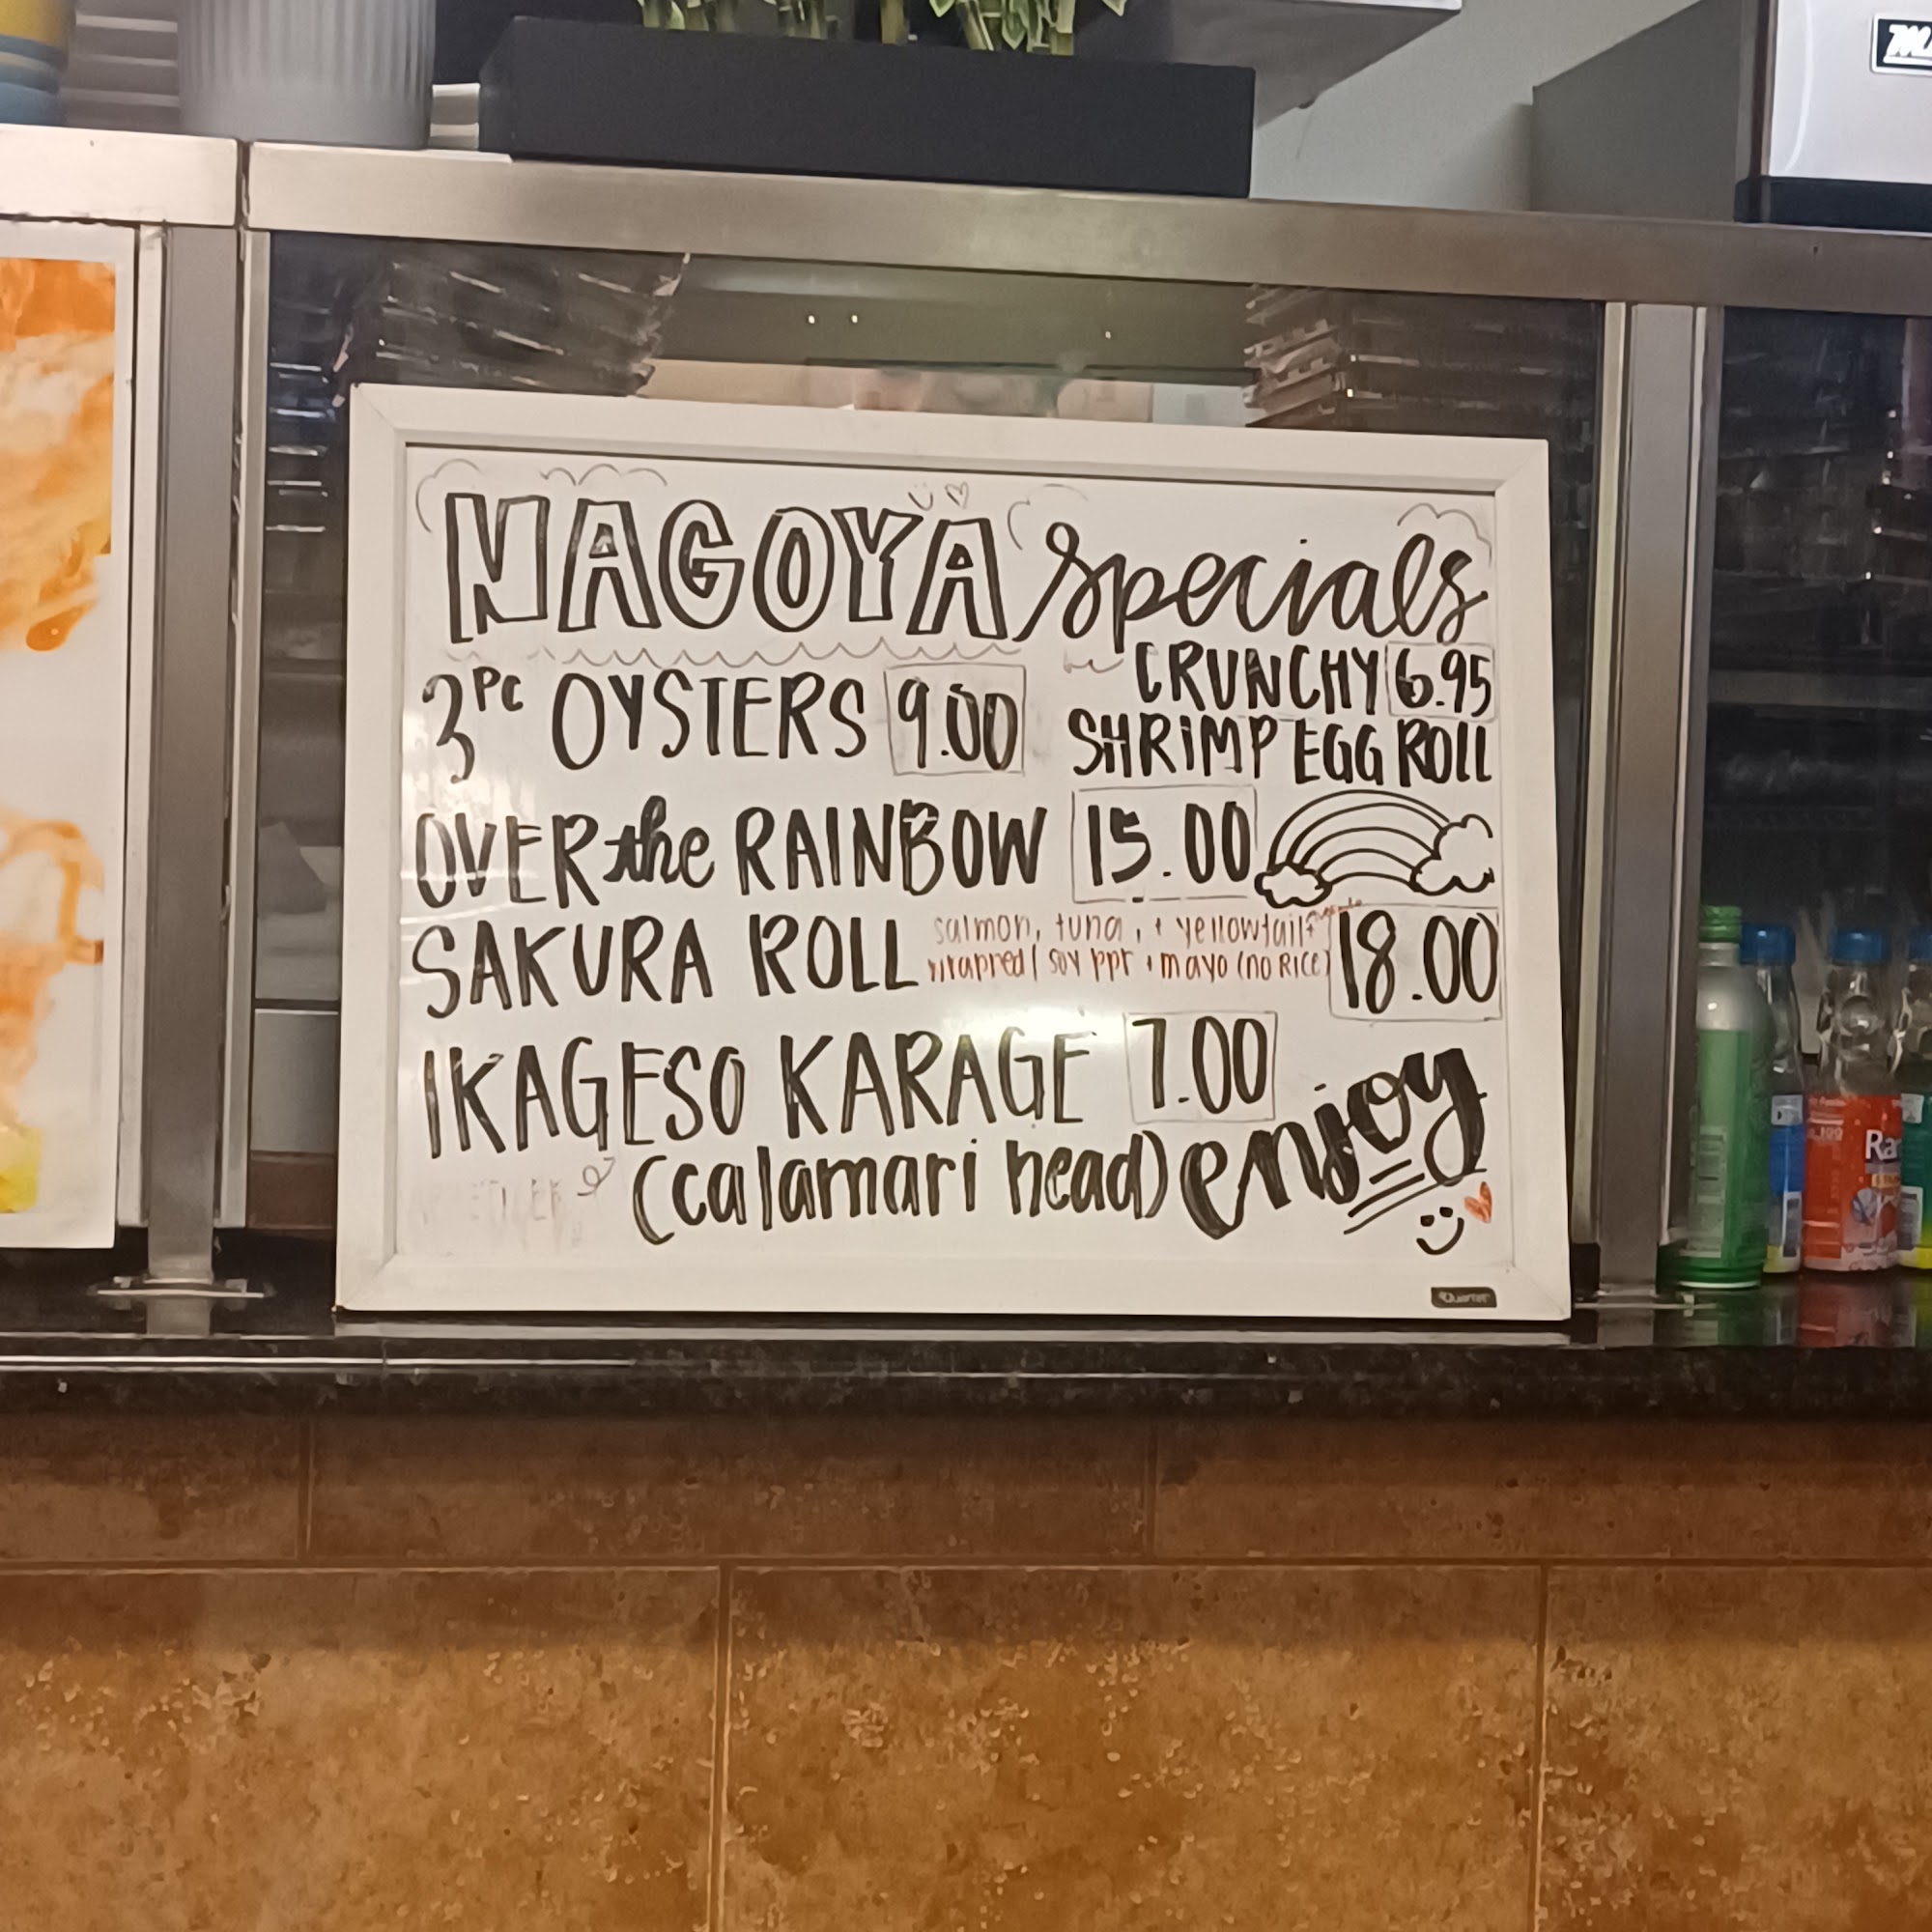 NAGOYA specials
3PC OYSTERS 9.00
CRUNCHY 6.95
SHRIMP EGG ROLL
OVER the RAINBOW 15.00
SAKURA ROLL 18.00
salmon, tuna, + yellowtail +
wrapped / soy ppr + mayo (no RICE)
IKAGESO KARAGE 7.00
(calamari head) enjoy
Quartet
Ra